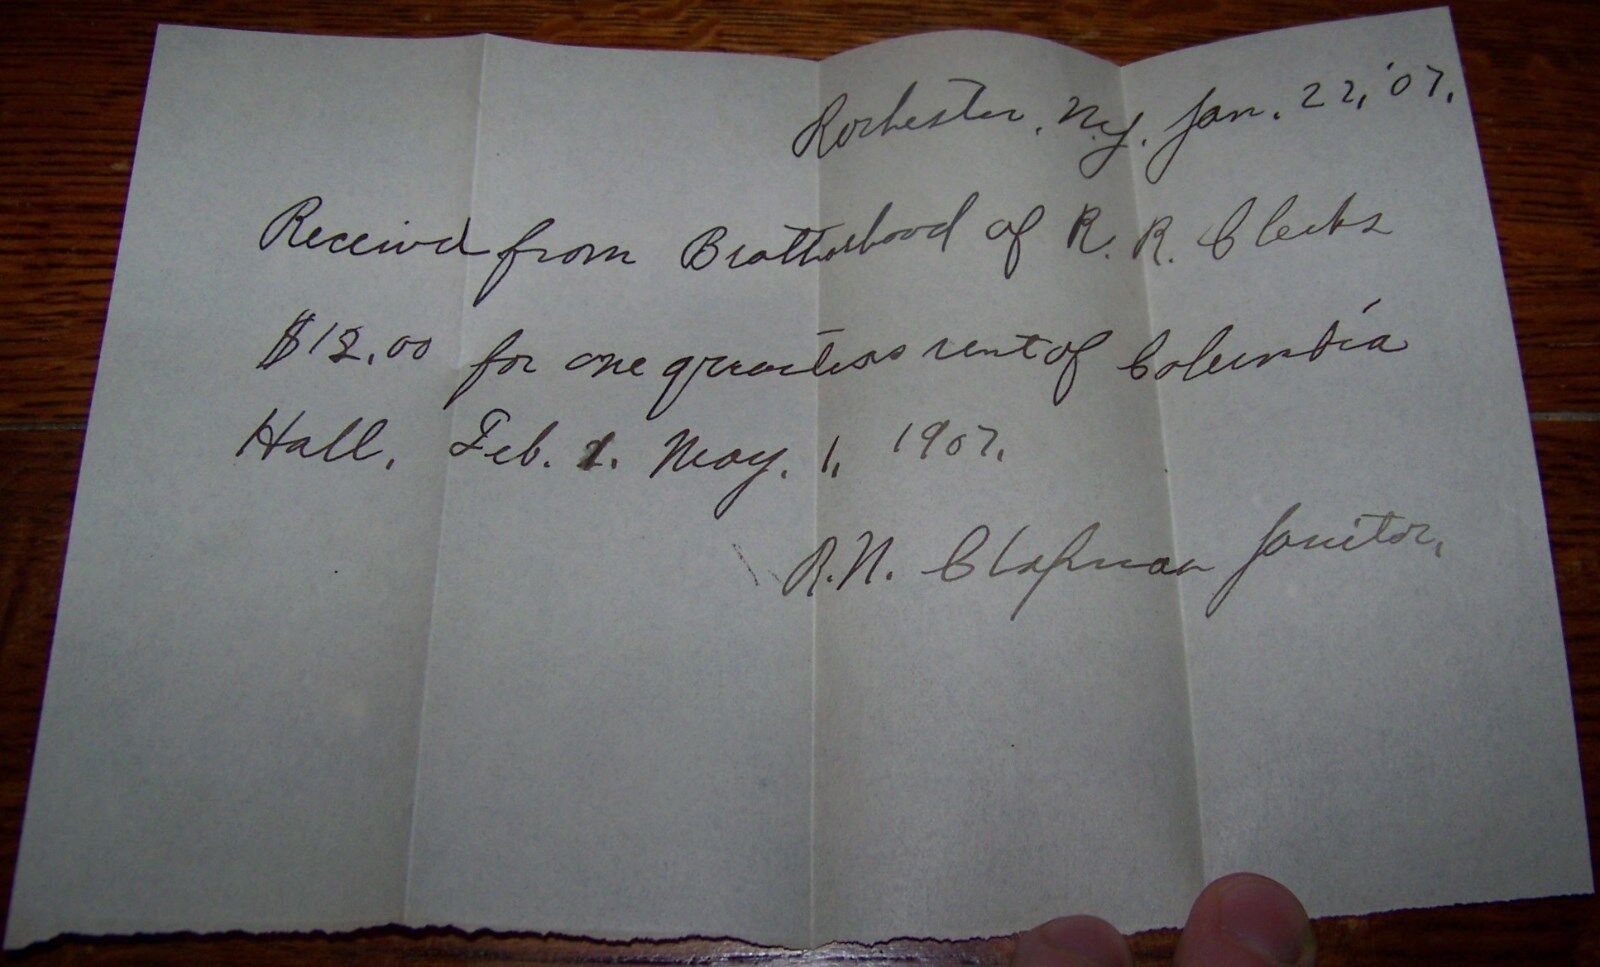 Rochester, N.Y. Jan. 22, '07.
Received from Brotherhood of R. R. Clerks
$12.00 for one quarters rent of Columbia
Hall, Feb. 1. May. 1, 1907.
R. N. Clapman Janitor,